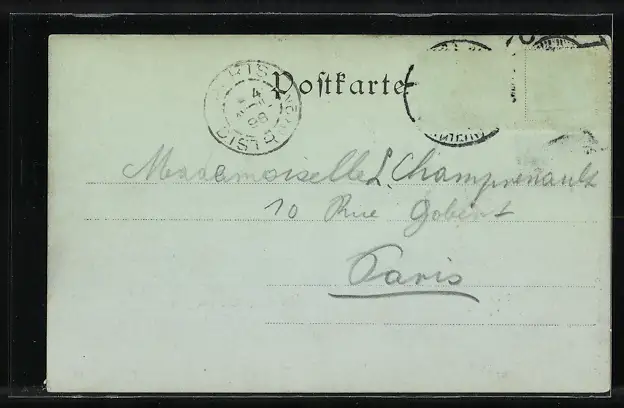 Postkarte.
PARIS
4
98
DISTR
Mademoiselle L. Champrenault
10 Rue Gobert
Paris